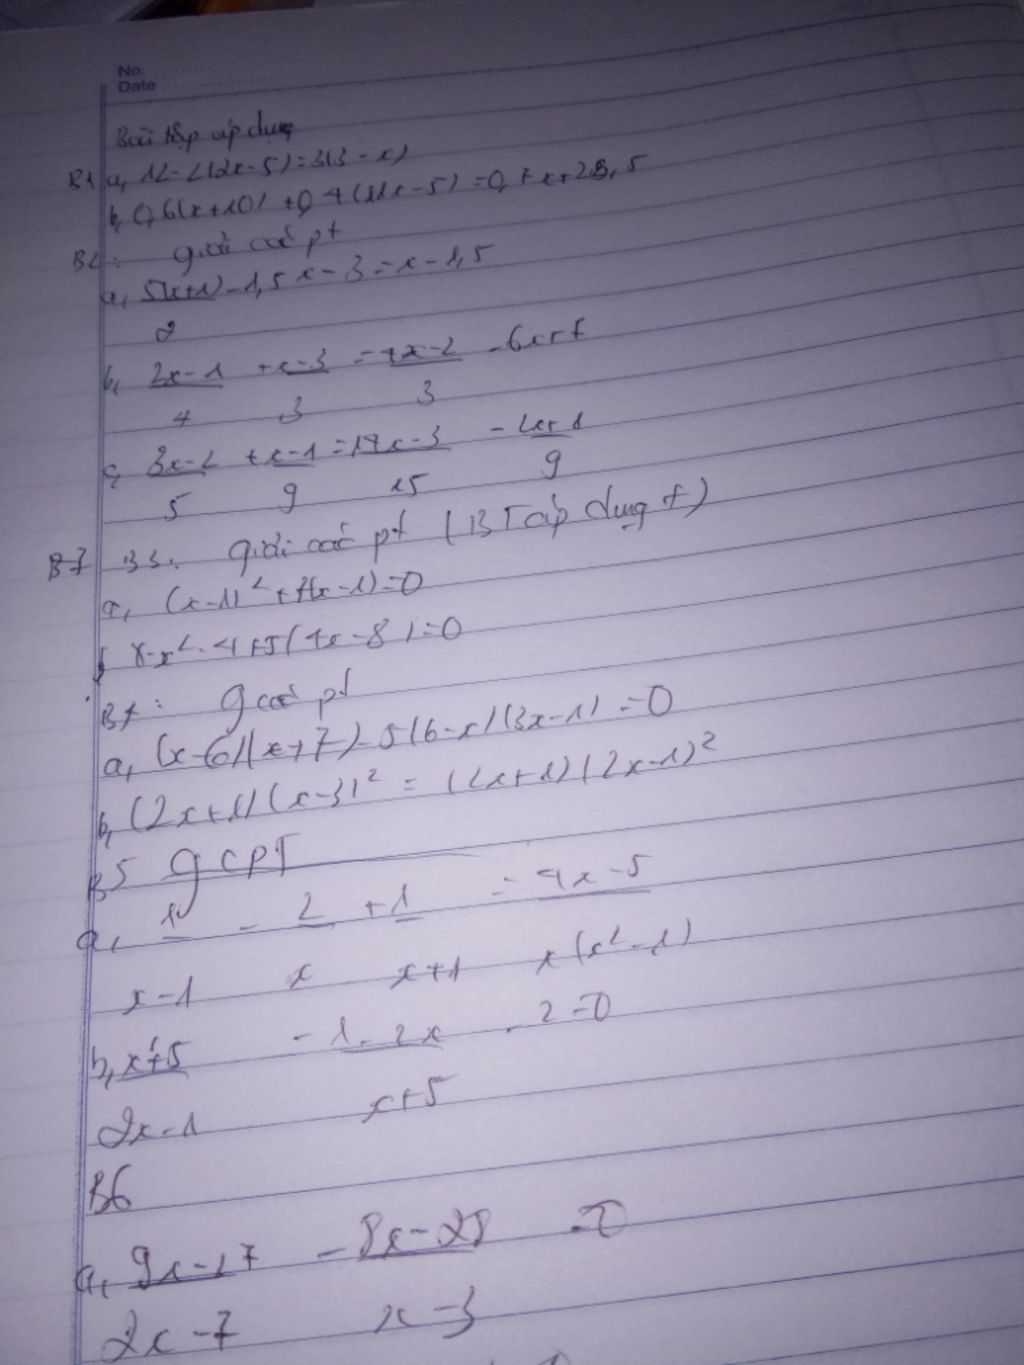 No.
Date
Bài tập áp dụng
B1 a, 12 - 2(2x-5) = 3(3-x)
b, 0,6(x+10) + 0,4(11x-5) = 0,7x + 28,5
B2: giải các pt
a, 5(x+1) - 1,5x - 3 = x - 1,5
2
b, 2x-1 + x-3 = 4x-2 - 6x+7
4 3 3
c, 3x-2 + x-1 = 14x-3 - 2x+1
5 9 15 9
B3: giải các pt (BT áp dụng
a, (x-1)² + 7(x-1) = 0
x² - 4 + 5(4x-8) = 0
B4: g các pt
a, (x-6)(x+7) - 5(6-x)(3x-1) = 0
b, (2x+1)(x-3)² = (2x+1)(2x-1)²
B5 g c pT
a, 1 - 2 + 1 = 4x-5
x-1 x x+1 x(x²-1)
b, x+5 - 1-2x - 2 = 0
2x-1 x+5
B6
a, 9x-27 - 8x-28 = 0
2x-7 x-3